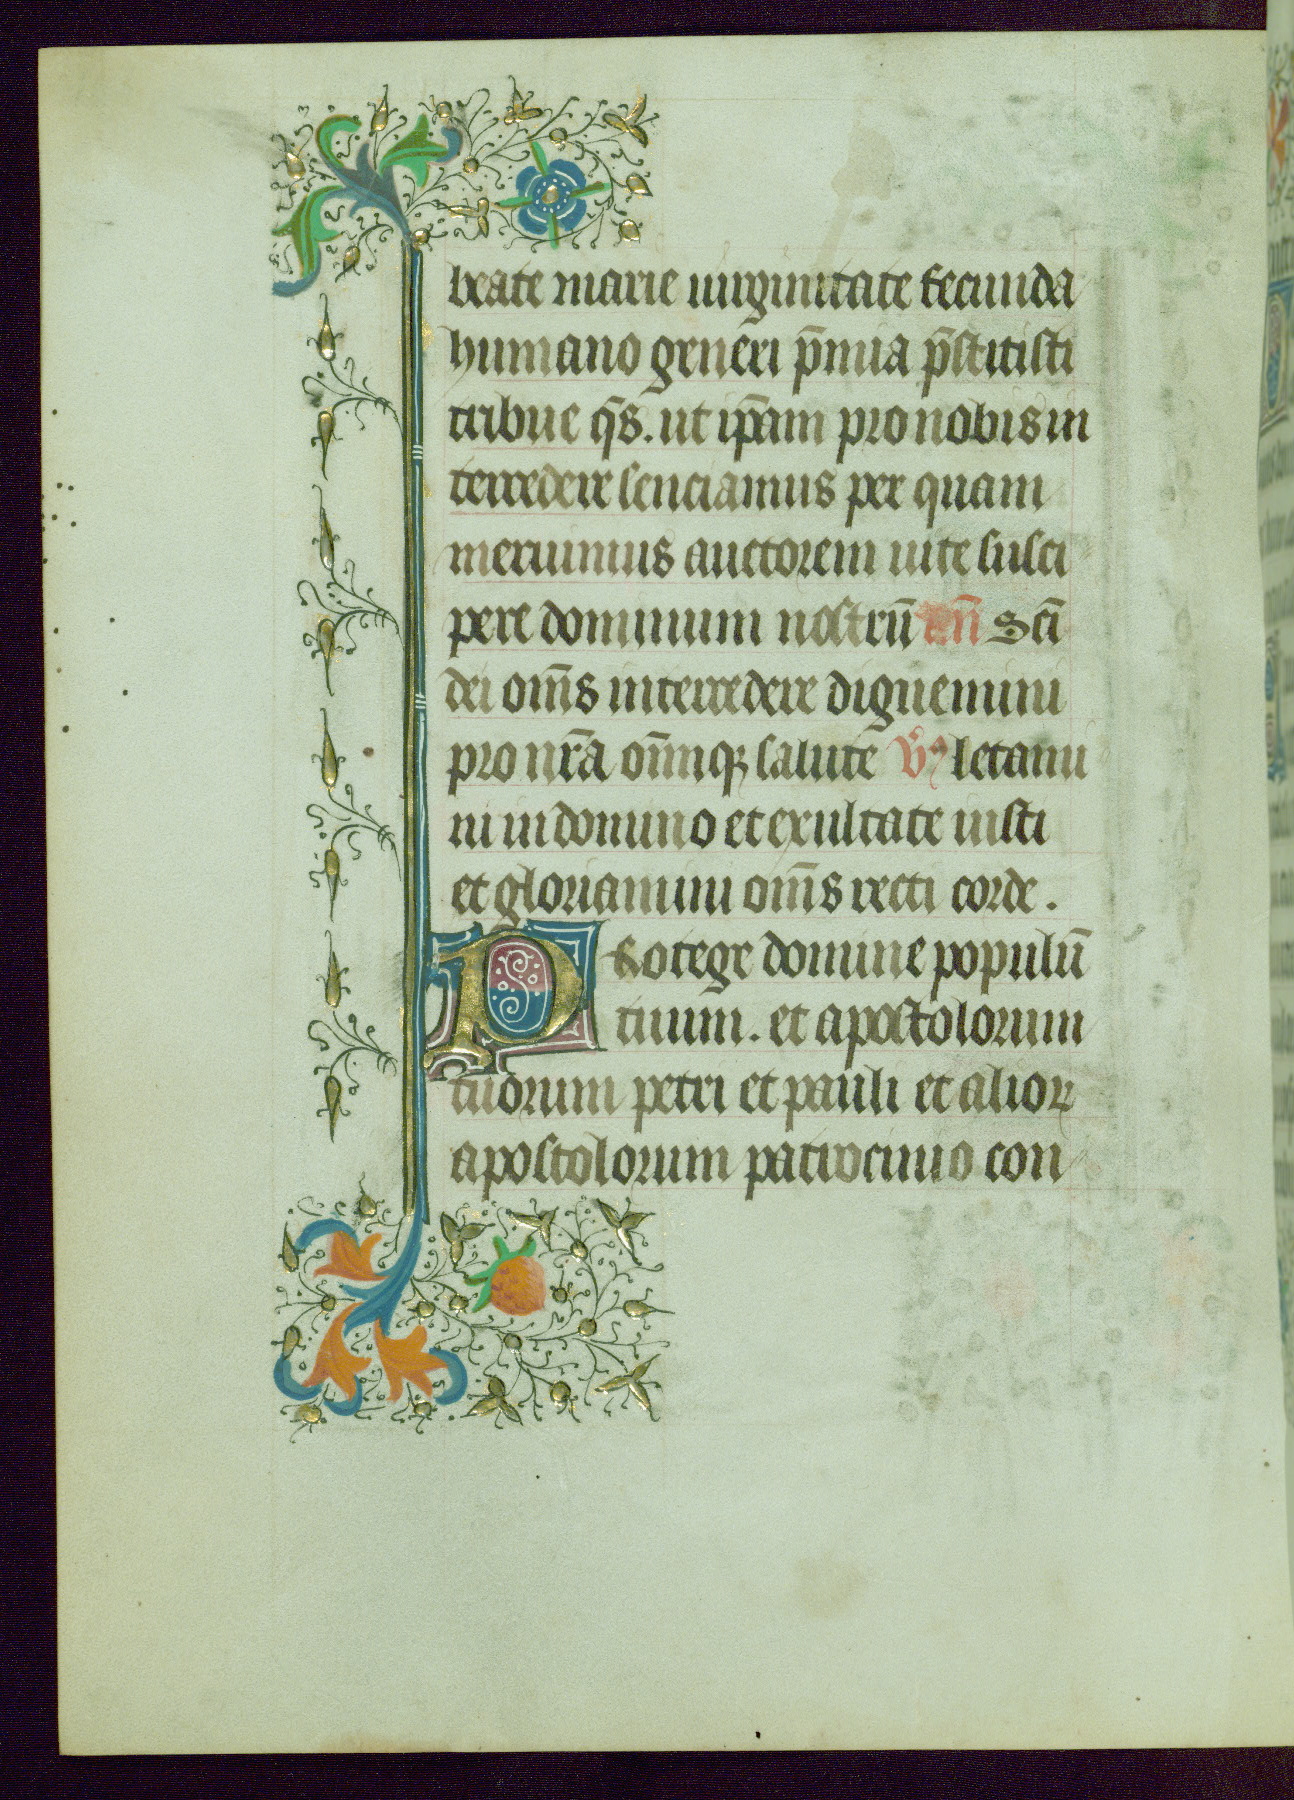 beate marie uirginitate fecunda
humano generi p̄mia p̄stitisti
tribue q̄s. ut ip̄am pro nobis in
tercedere senciamus per quam
meruimus auctorem uite susci
pere dominum nostrū an̄ Sc̄i
dei om̄s intercedere dignemini
pro nr̄a om̄iūq; salute letami
ni in domino et exultate iusti
et gloriamini om̄s recti corde.
Protege domine populū
tuum. et apostolorum
tuorum petri et pauli et alioꝝ
apostolorum patrocinio con